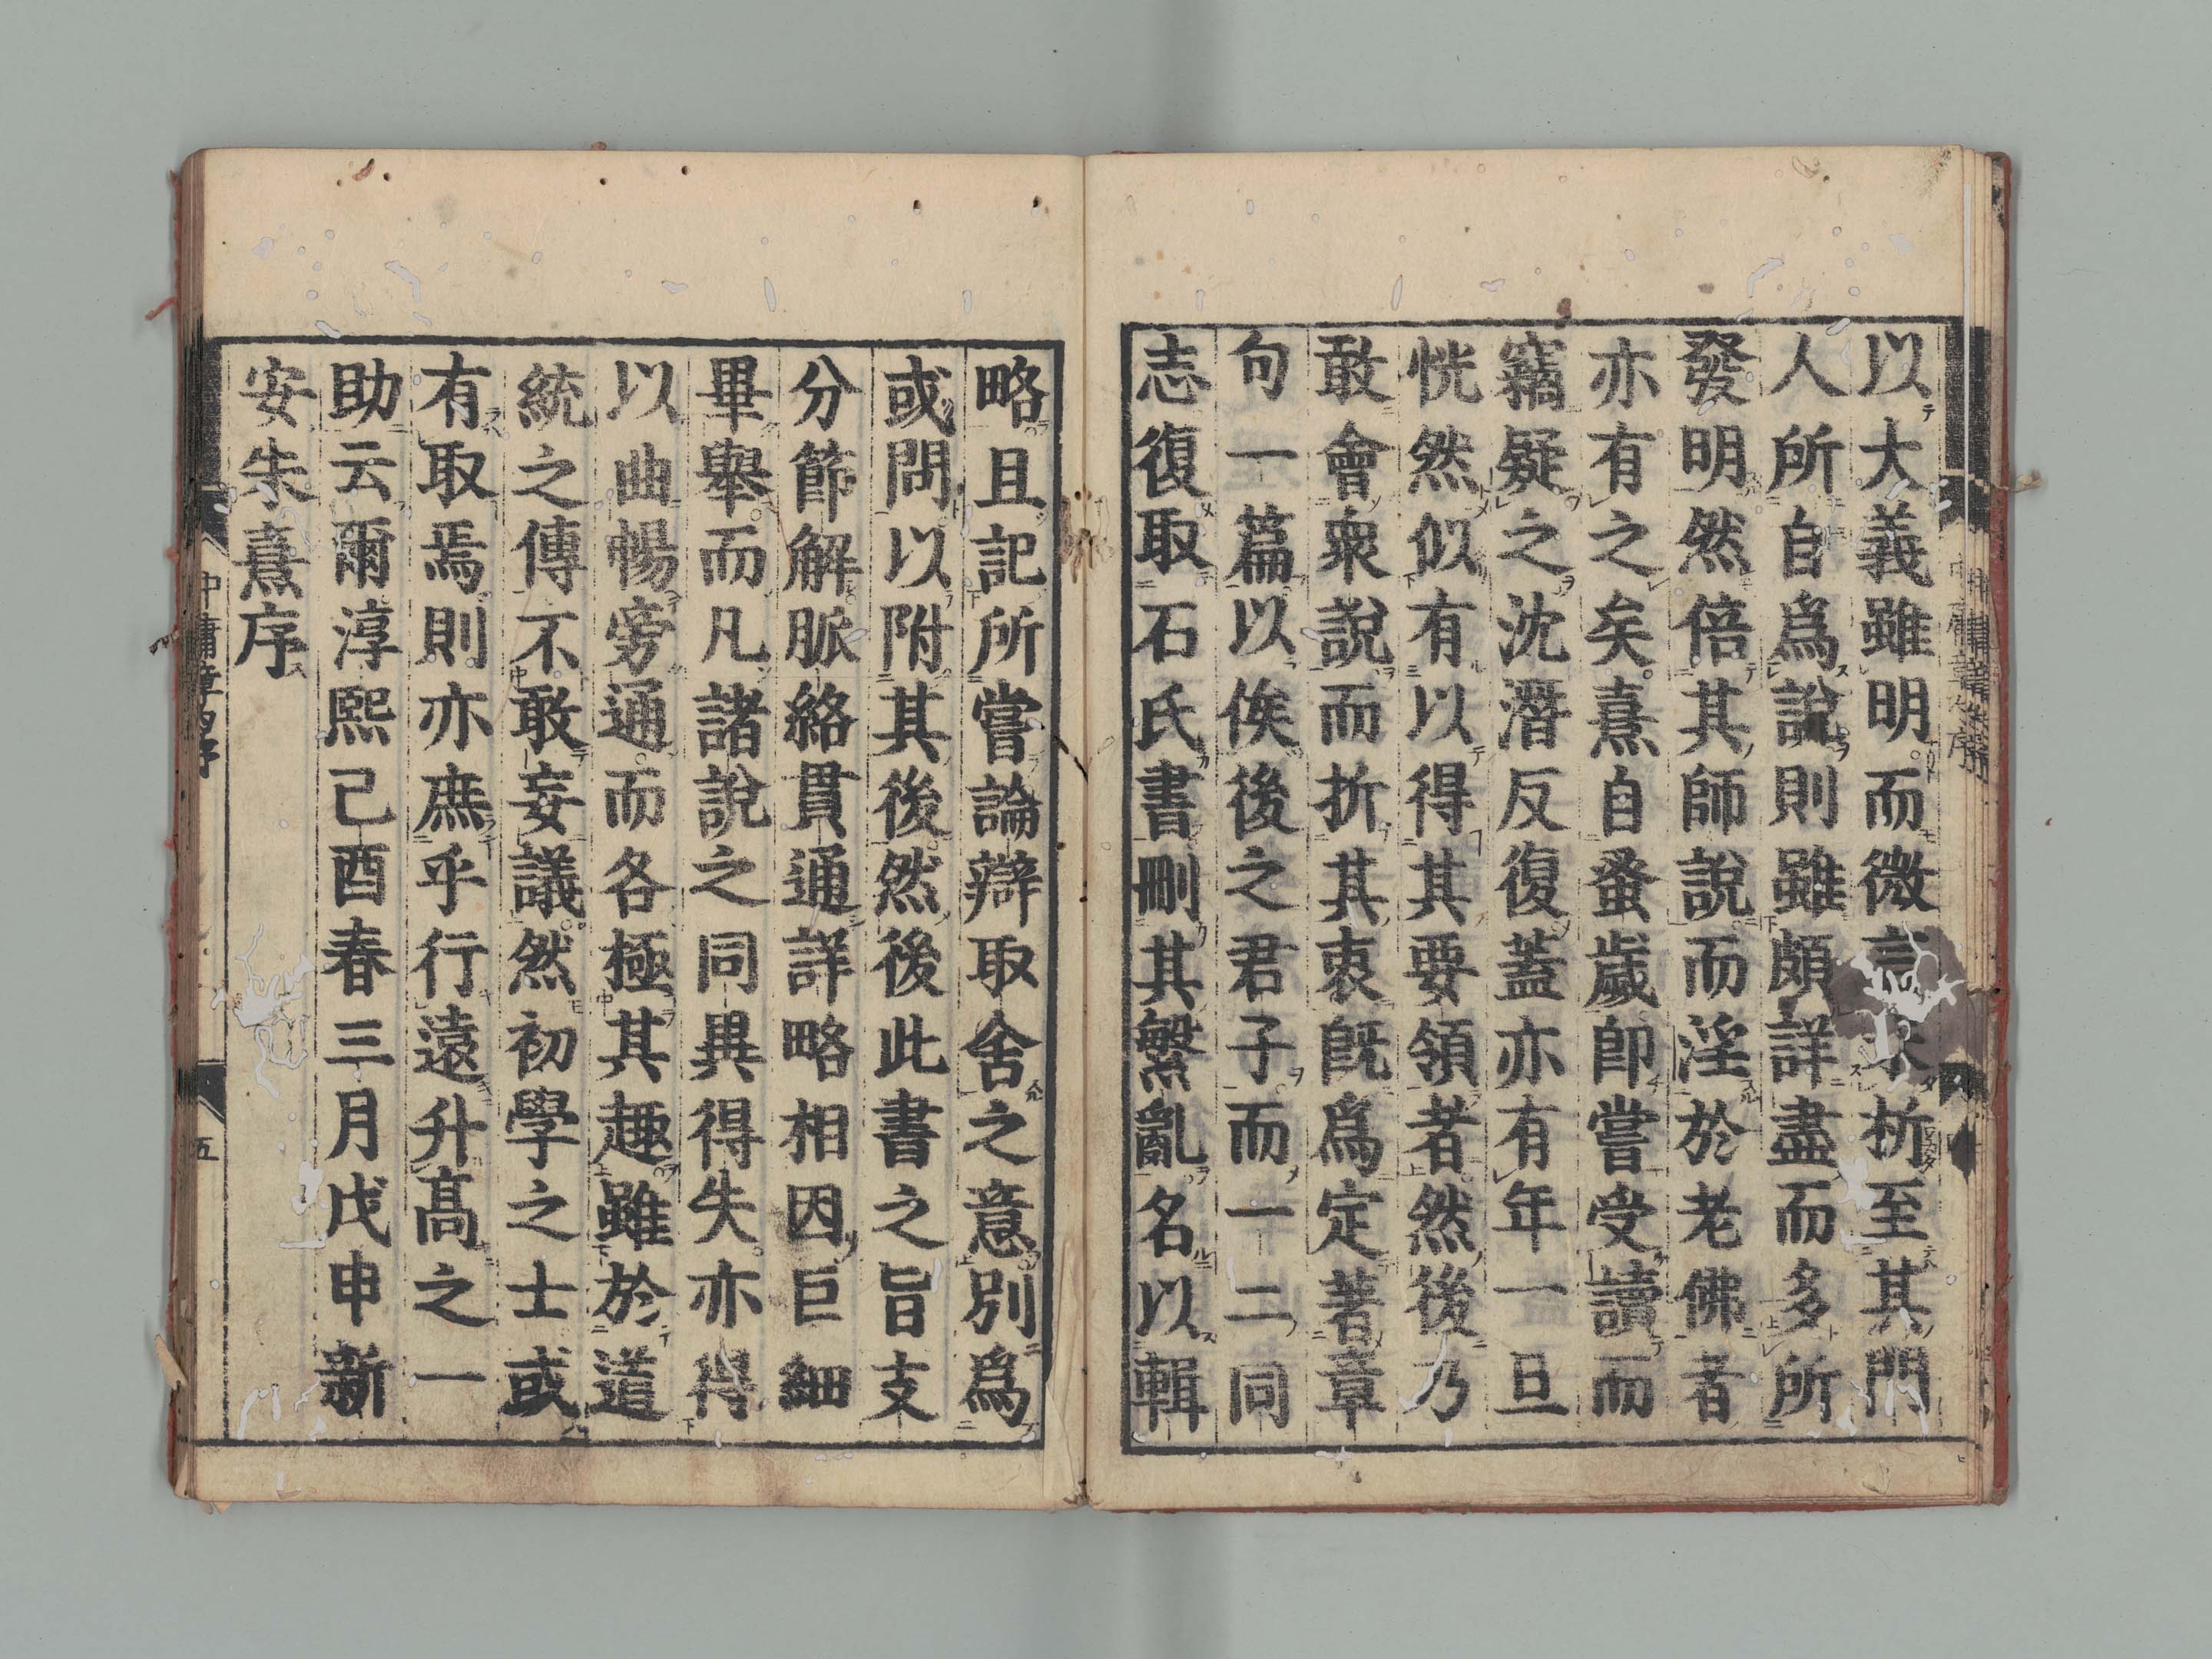 以大義雖明而微言未析至其門
人所自爲說則雖頗詳盡而多所
發明然倍其師說而淫於老佛者
亦有之矣熹自蚤歲卽嘗受讀而
竊疑之沈潛反復蓋亦有年一旦
恍然似有以得其要領者然後乃
敢會衆說而折其衷旣爲定著章
句一篇以俟後之君子而一二同
志復取石氏書刪其繁亂名以輯
略且記所嘗論辯取舍之意別爲
或問以附其後然後此書之旨支
分節解脈絡貫通詳略相因巨細
畢舉而凡諸說之同異得失亦得
以曲暢旁通而各極其趣雖於道
統之傳不敢妄議然初學之士或
有取焉則亦庶乎行遠升高之一
助云爾淳熙己酉春三月戊申新
安朱熹序
中庸章句序
五